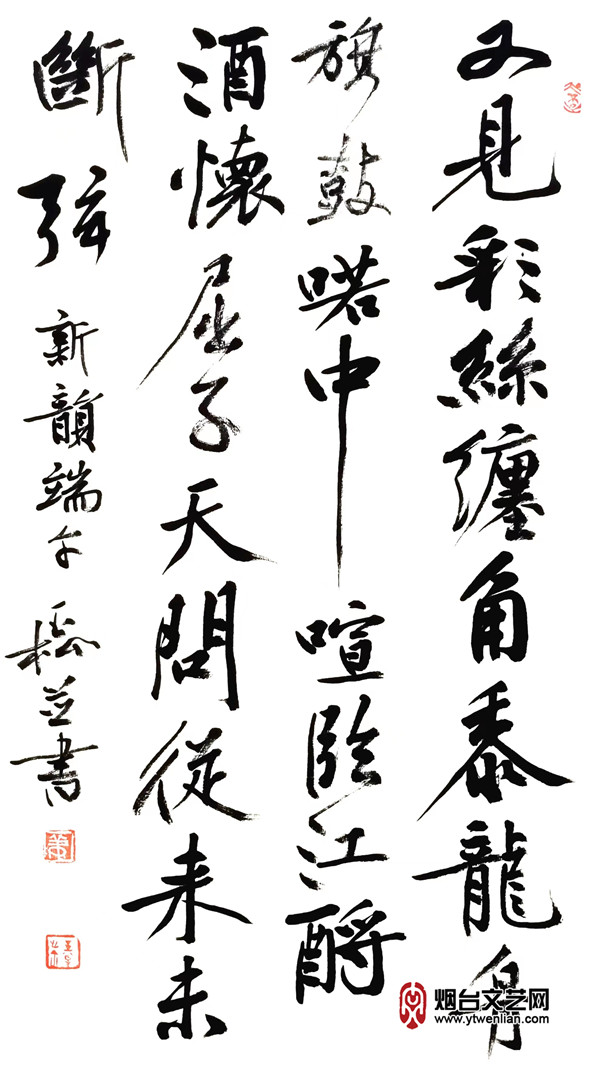 又見彩絲纏角黍龍舟
旗鼓喏中喧臨江酹
酒懷屈子天問從来未
斷弦
新韻端午 並書
烟台文艺网
www.ytwenlian.com